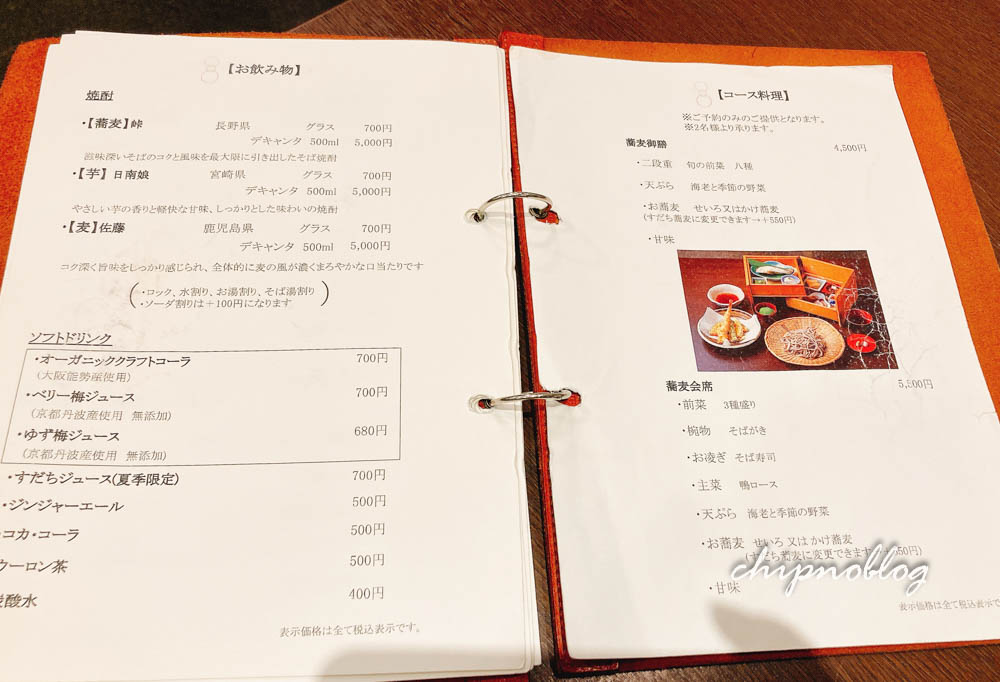 【お飲み物】
焼酎
・【蕎麦】峠 長野県 グラス 700円
デキャンタ 500ml 5,000円
滋味深いそばのコクと風味を最大限に引き出したそば焼酎
・【芋】日南娘 宮崎県 グラス 700円
デキャンタ 500ml 5,000円
やさしい芋の香りと軽快な甘味、しっかりとした味わいの焼酎
・【麦】佐藤 鹿児島県 グラス 700円
デキャンタ 500ml 5,000円
コク深く旨味をしっかり感じられ、全体的に麦の風が濃くまろやかな口当たりです
・ロック、水割り、お湯割り、そば湯割り
・ソーダ割りは＋100円になります
ソフトドリンク
・オーガニッククラフトコーラ 700円
(大阪能勢産使用)
・ベリー梅ジュース 700円
(京都丹波産使用 無添加)
・ゆず梅ジュース 680円
(京都丹波産使用 無添加)
・すだちジュース(夏季限定) 700円
・ジンジャーエール 500円
・コカ・コーラ 500円
ウーロン茶 500円
炭酸水 400円
表示価格は全て税込表示です。
【コース料理】
※ご予約のみのご提供となります。
※2名様より承ります。
蕎麦御膳 4,500円
・二段重 旬の前菜 八種
・天ぷら 海老と季節の野菜
・お蕎麦 せいろ又はかけ蕎麦
(すだち蕎麦に変更できます→＋550円)
・甘味
蕎麦会席 5,500円
・前菜 3種盛り
・椀物 そばがき
・お凌ぎ そば寿司
・主菜 鴨ロース
・天ぷら 海老と季節の野菜
・お蕎麦 せいろ 又は かけ蕎麦
(すだち蕎麦に変更できます→＋550円)
・甘味
表示価格は全て税込表示で
chipnoblog